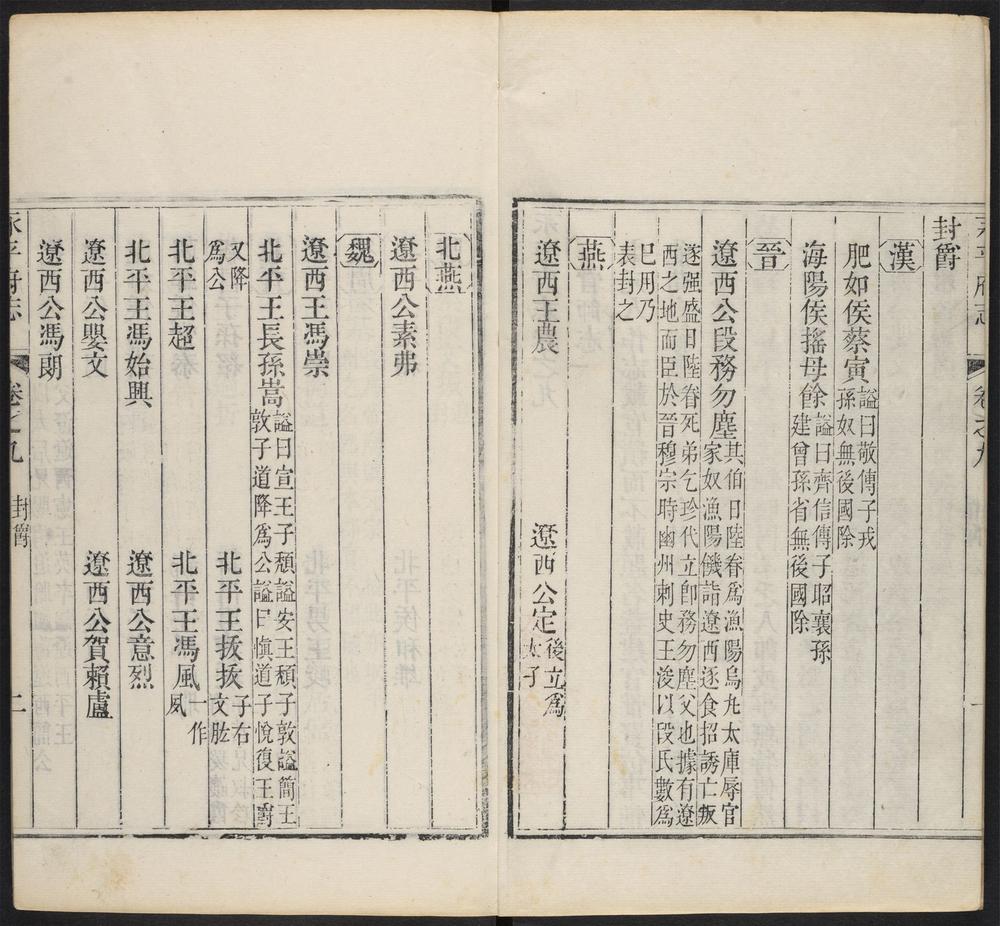 永平府志 卷之九
封爵
漢
肥如侯蔡寅謚曰敬傳子戎
孫奴無後國除
海陽侯搖母餘謚曰齊信傳子昭襄孫
建曾孫省無後國除
晉
遼西公段務勿塵其伯日陸眷爲漁陽烏丸太庫辱官
家奴漁陽饑詣遼西逐食招誘亡叛
遂强盛日陸眷死弟乞珍代立卽務勿塵父也據有遼
西之地而臣於晉穆宗時幽州刺史王浚以段氏數爲
巳用乃
表封之
燕
遼西王農 遼西公定後立爲
太子
北燕
遼西公素弗
魏
遼西王馮崇
北平王長孫嵩謚曰宣王子頹謚安王頹子敦謚簡王
敦子道降爲公謚曰愼道子悅復王爵
又降
爲公
北平王拔拔子右
文肱
北平王超 北平王馮風一作
夙
北平王馮始興 遼西公意烈
遼西公嬰文 遼西公賀賴盧
遼西公馮朗
永平府志 卷之九 封爵 二